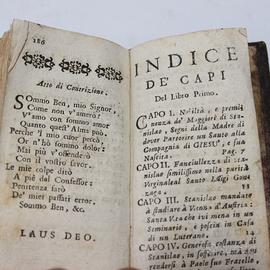 186
Atto di Contrizione.
SOmmo Ben, mio Signor,
Come non v'amo?
V'amo con sommo amor
Quanto quest' Alma può.
Perche 'l mio cuor peccò,
Or n'hò somino dolor:
Mai più v'offenderò
Con il vostro favor.
Le mie colpe dirò
A piè dal Confessor:
Penitenza farò
De' miei passati error.
Sommo Ben, &c.
LAUS DEO.
INDICE
DE' CAPI
Del Libro Primo.
CAPO I. Nobiltà, e premi-
nenza de' Maggiori di Sta-
nislao, Segni della Madre di
dover Partorire un Santo alla
Compagnia di GIESU', e sua
Nascita. Pag. 7
CAPO II. Fanciullezza di Sta-
nislao similissima nella purità
Virginaleal Santo Luigi Gon-
zaga.
CAPO III. Stanislao mandato
à studiare à Vienna d'Austria
Santa Vita che ivi mena in un
Seminario, e poscia in Casa
di un Luterano. 14
CAPO IV. Generosa costanza di
Stanislao, in soffrire, ma non
arrendersi à Paolo suo Fratello,